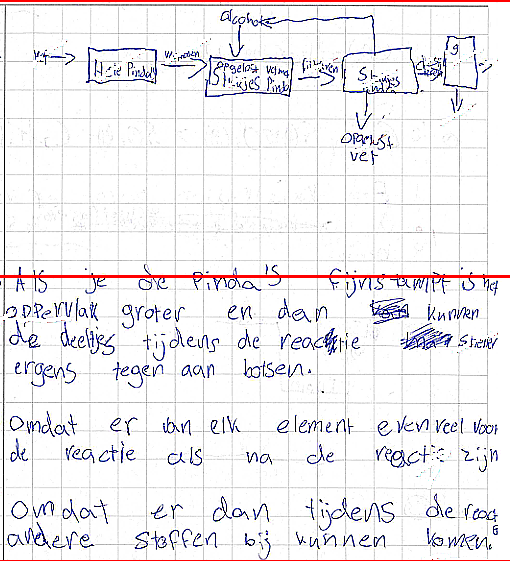 alcohol
Hele Pinda
Opgelost
Stukjes Pinda
filtreren
Stukjes
Opgelost
vet
Als je de Pinda's fijnstampt is het
oppervlak groter en dan kunnen
de deeltjes tijdens de reactie sneller
ergens tegen aan botsen.
Omdat er van elk element evenveel voor
de reactie als na de reactie zijn
Omdat er dan tijdens de reac
andere stoffen bij kunnen komen.